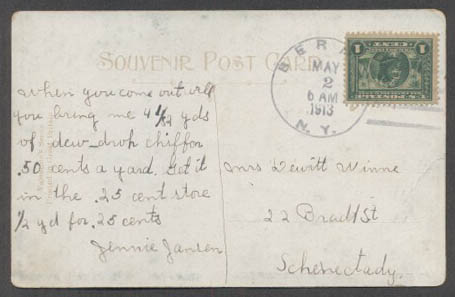 SOUVENIR POST CARD
BER
MAY
2
6 AM
1913
N. Y.
1 CENT 1
U.S. POSTAGE
when you come out will
you bring me 4 1/2 yds
of dew-drop chiffon
.50 cents a yard. Get it
in the .25 cent store
1/2 yd for .25 cents
Jennie Jansen
Mrs Dewitt Winne
22 Bradt St
Schenectady.